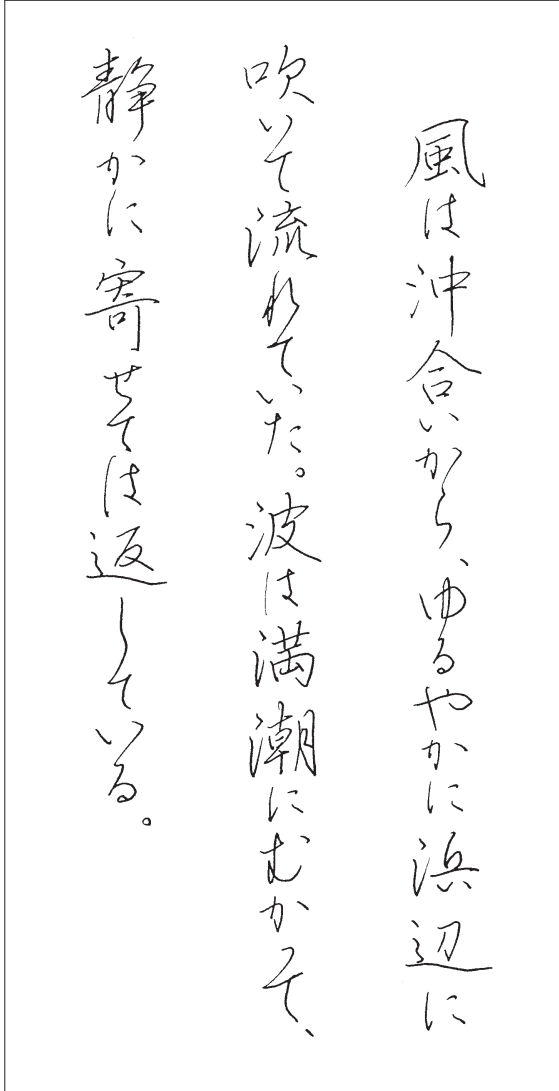 風は沖合いから、ゆるやかに浜辺に
吹いて流れていた。波は満潮にむかって、
静かに寄せては返している。